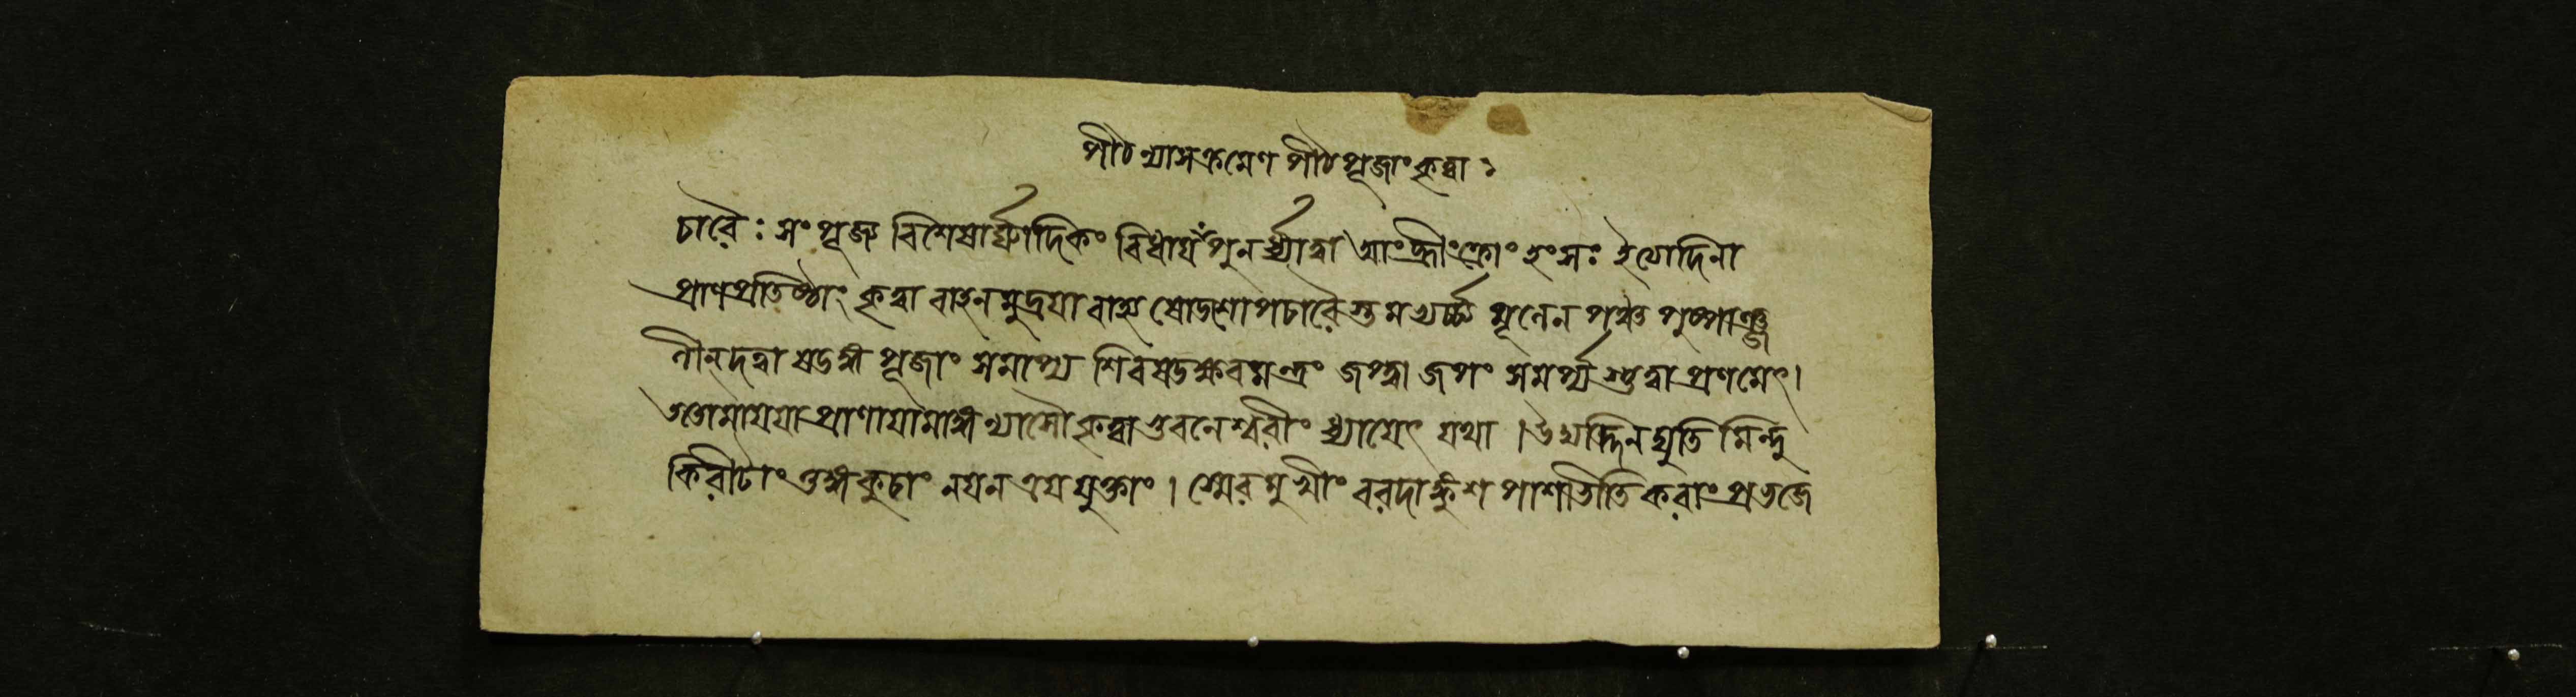 পীঠন্যাসক্রমেণ পীঠপূজাং কৃত্বা ঃ
চারৈঃ সংপূজ্য বিশেষার্ঘ্যাদিকং বিধায় পুনর্ধ্যাত্বা আং হ্রীং ক্রোং হংসঃ ইত্যাদিনা
প্রাণপ্রতিষ্ঠাং কৃত্বা বাহন মুদ্রয়া বাহ্য ষোডশোপচারৈঃ মূলেন পঞ্চ পুষ্পাঞ্জ
লীন্ দত্বা ষডঙ্গ পূজাং সমাপ্য শিবষডক্ষরমন্ত্রং জপ্ত্বা জপং সমর্প্য স্তুত্বা প্রণমেৎ।
ততো মায়য়া প্রাণায়ামাঙ্গন্যাসৌ কৃত্বা ভুবনেশ্বরীং ধ্যায়েৎ যথা । উদ্যদ্দিনদ্যুতি মিন্দু
কিরীটাং তুঙ্গকুচাং নয়নত্রয়যুক্তাং । স্মেরমুখীং বরদাঙ্কুশ পাশাভীতি করাং প্রভজে